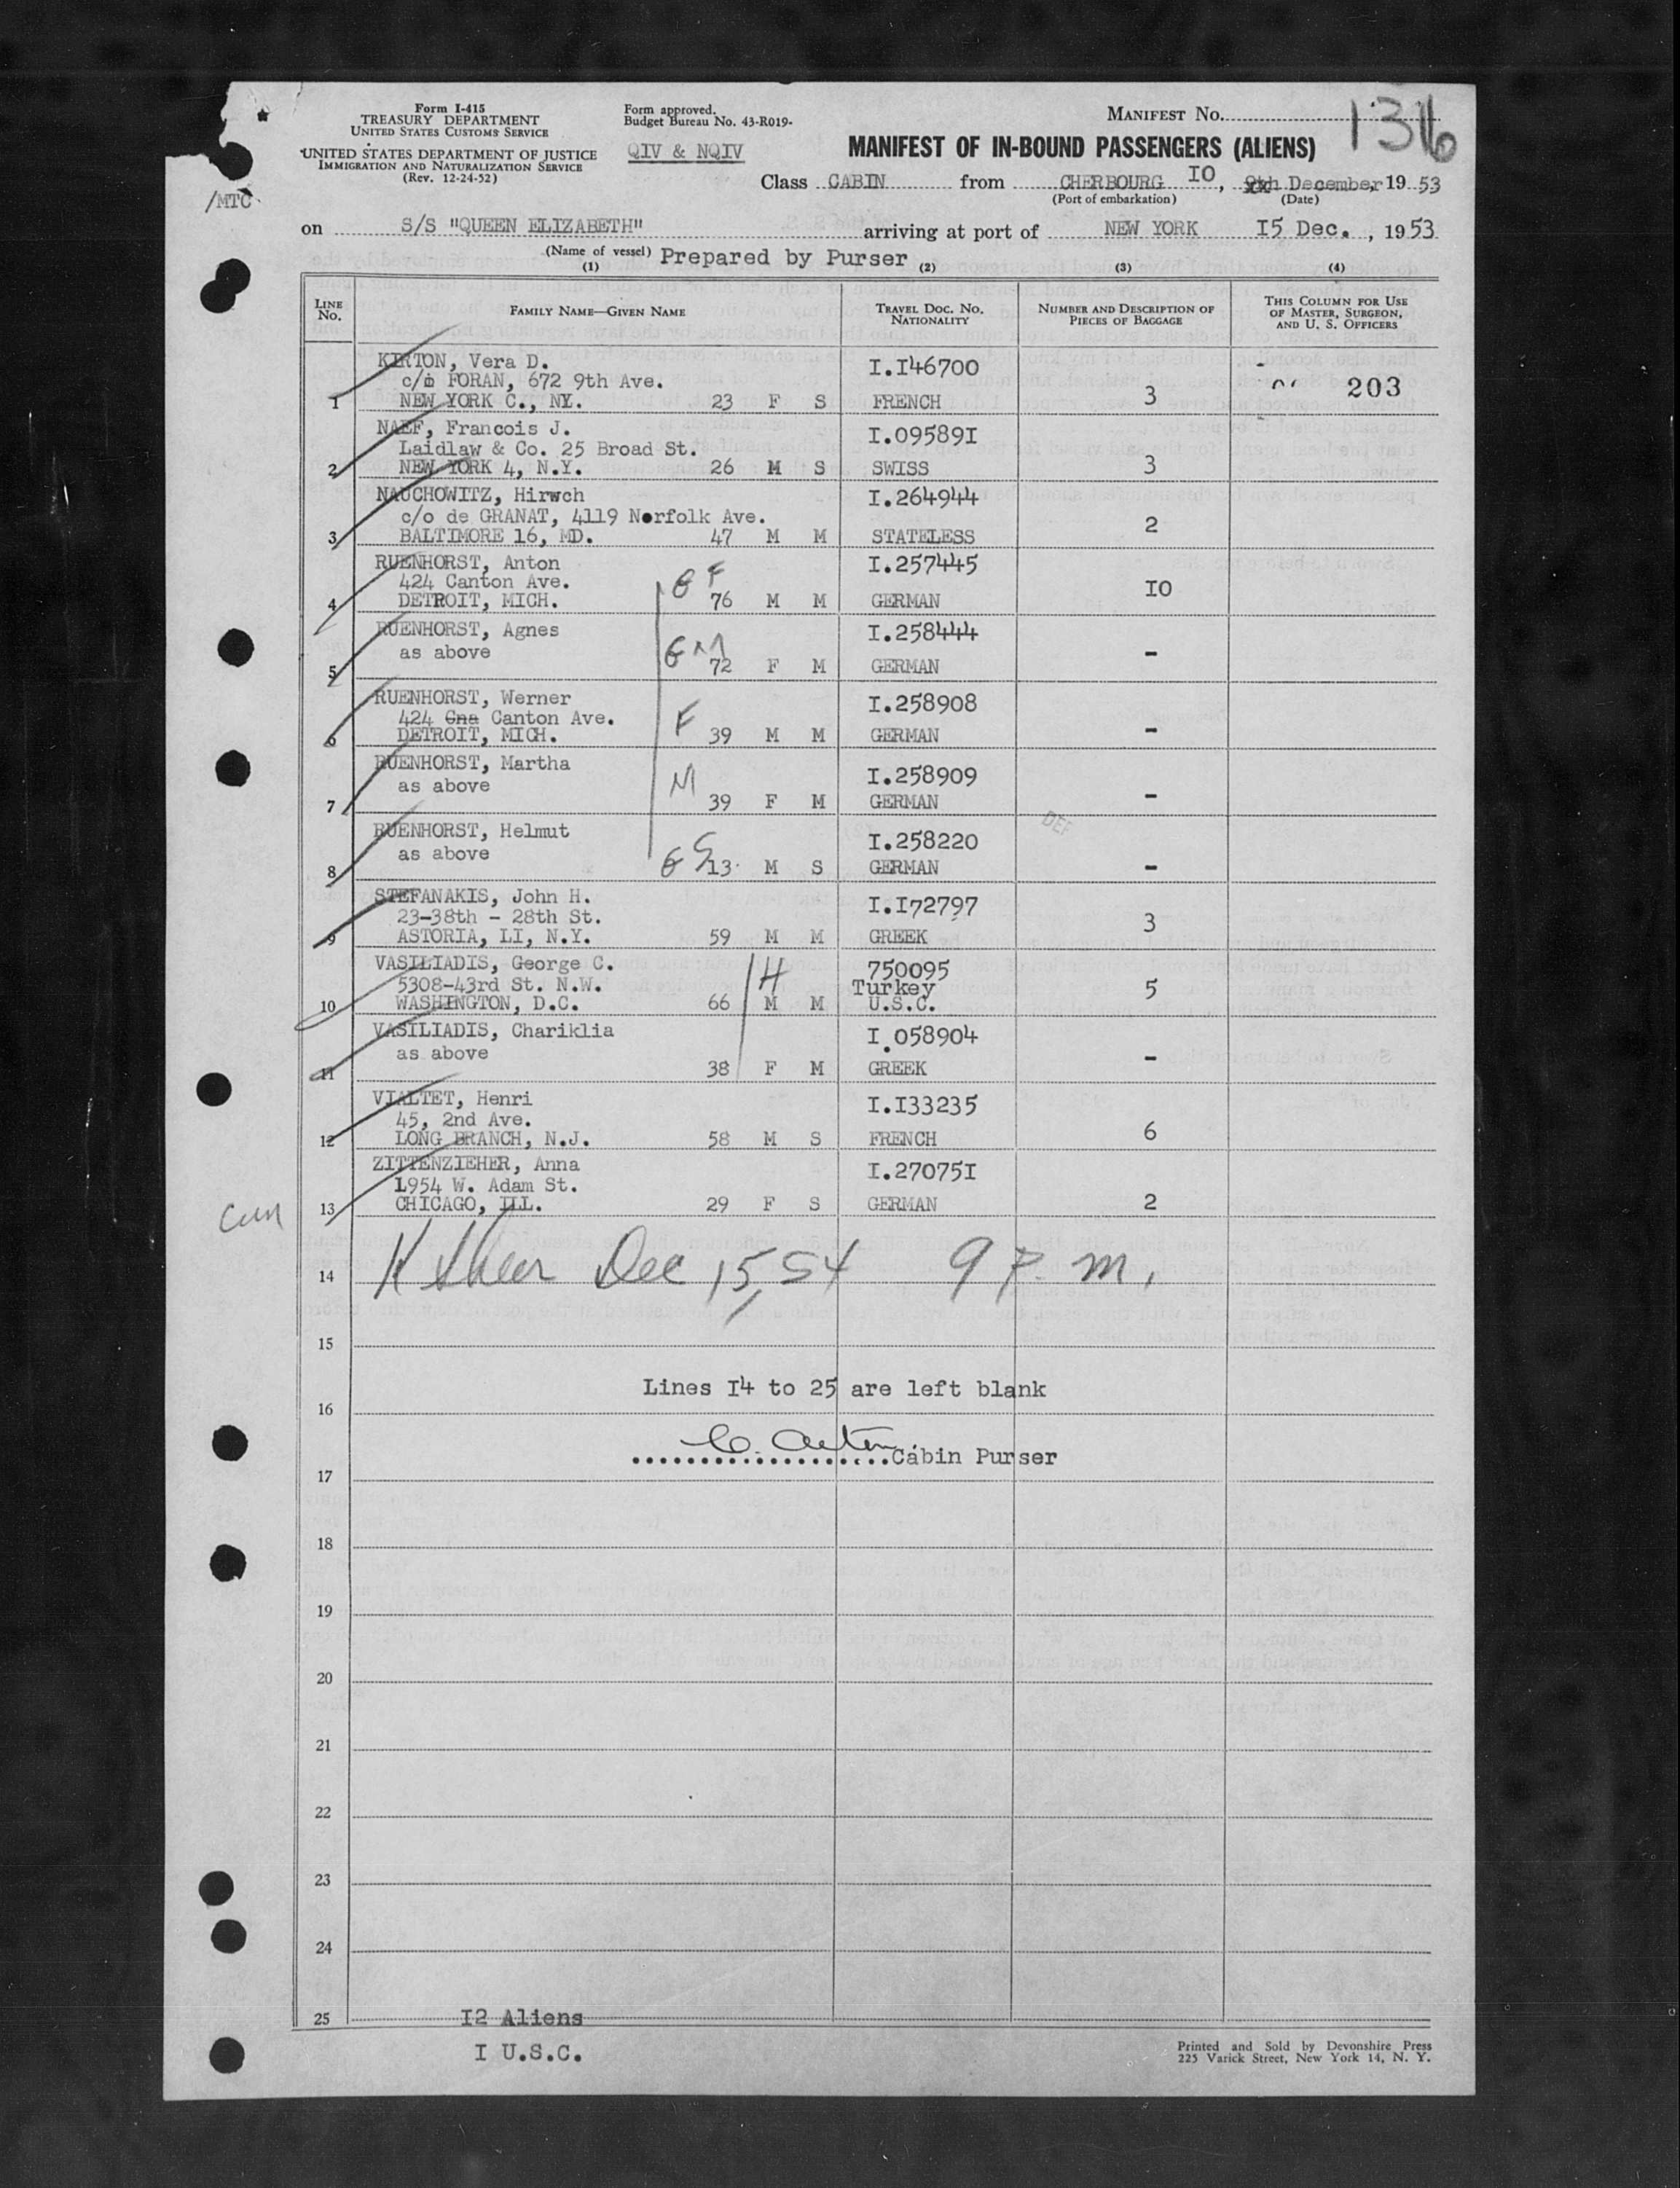 Form I-415
TREASURY DEPARTMENT
UNITED STATES CUSTOMS SERVICE
UNITED STATES DEPARTMENT OF JUSTICE
IMMIGRATION AND NATURALIZATION SERVICE
(Rev. 12-24-52)
/MTC
Form approved.
Budget Bureau No. 43-R019-
QIV & NQIV
MANIFEST NO. 1316
MANIFEST OF IN-BOUND PASSENGERS (ALIENS)
Class CABIN from CHERBOURG IO, December, 1953
(Port of embarkation) (Date)
on S/S "QUEEN ELIZABETH" arriving at port of NEW YORK I5 Dec. , 1953
(Name of vessel) Prepared by Purser
(1) (2) (3) (4)
LINE No. FAMILY NAME—GIVEN NAME TRAVEL DOC. NO. NATIONALITY NUMBER AND DESCRIPTION OF PIECES OF BAGGAGE THIS COLUMN FOR USE OF MASTER, SURGEON, AND U. S. OFFICERS
KIRTON, Vera D. I.I46700
c/o FORAN, 672 9th Ave. 203
1 NEW YORK C., NY. 23 F S FRENCH 3
NAEF, Francois J. I.09589I
Laidlaw & Co. 25 Broad St.
2 NEW YORK 4, N.Y. 26 M S SWISS 3
NAUCHOWITZ, Hirwch I.264944
c/o de GRANAT, 4119 Norfolk Ave.
3 BALTIMORE 16, MD. 47 M M STATELESS 2
RUENHORST, Anton I.257445
424 Canton Ave. G F
4 DETROIT, MICH. 76 M M GERMAN IO
RUENHORST, Agnes I.258444
as above G M
5 72 F M GERMAN -
RUENHORST, Werner I.258908
424 Cna Canton Ave. F
6 DETROIT, MICH. 39 M M GERMAN -
RUENHORST, Martha I.258909
as above M
7 39 F M GERMAN -
RUENHORST, Helmut I.258220
as above G S
8 13 M S GERMAN -
STEFANAKIS, John H. I.I72797
23-38th - 28th St.
9 ASTORIA, LI, N.Y. 59 M M GREEK 3
VASILIADIS, George C. H 750095
5308-43rd St. N.W. Turkey
10 WASHINGTON, D.C. 66 M M U.S.C. 5
VASILIADIS, Chariklia I.058904
as above
11 38 F M GREEK -
VIALTET, Henri I.I33235
45, 2nd Ave.
12 LONG BRANCH, N.J. 58 M S FRENCH 6
ZITTENZIEHER, Anna I.27075I
1954 W. Adam St.
13 CHICAGO, ILL. 29 F S GERMAN 2
14 Dec 15, 54 9 P. m.
15
Lines I4 to 25 are left blank
16
Cabin Purser
17
18
19
20
21
22
23
24
25 I2 Aliens
I U.S.C.
Printed and Sold by Devonshire Press
225 Varick Street, New York 14, N. Y.